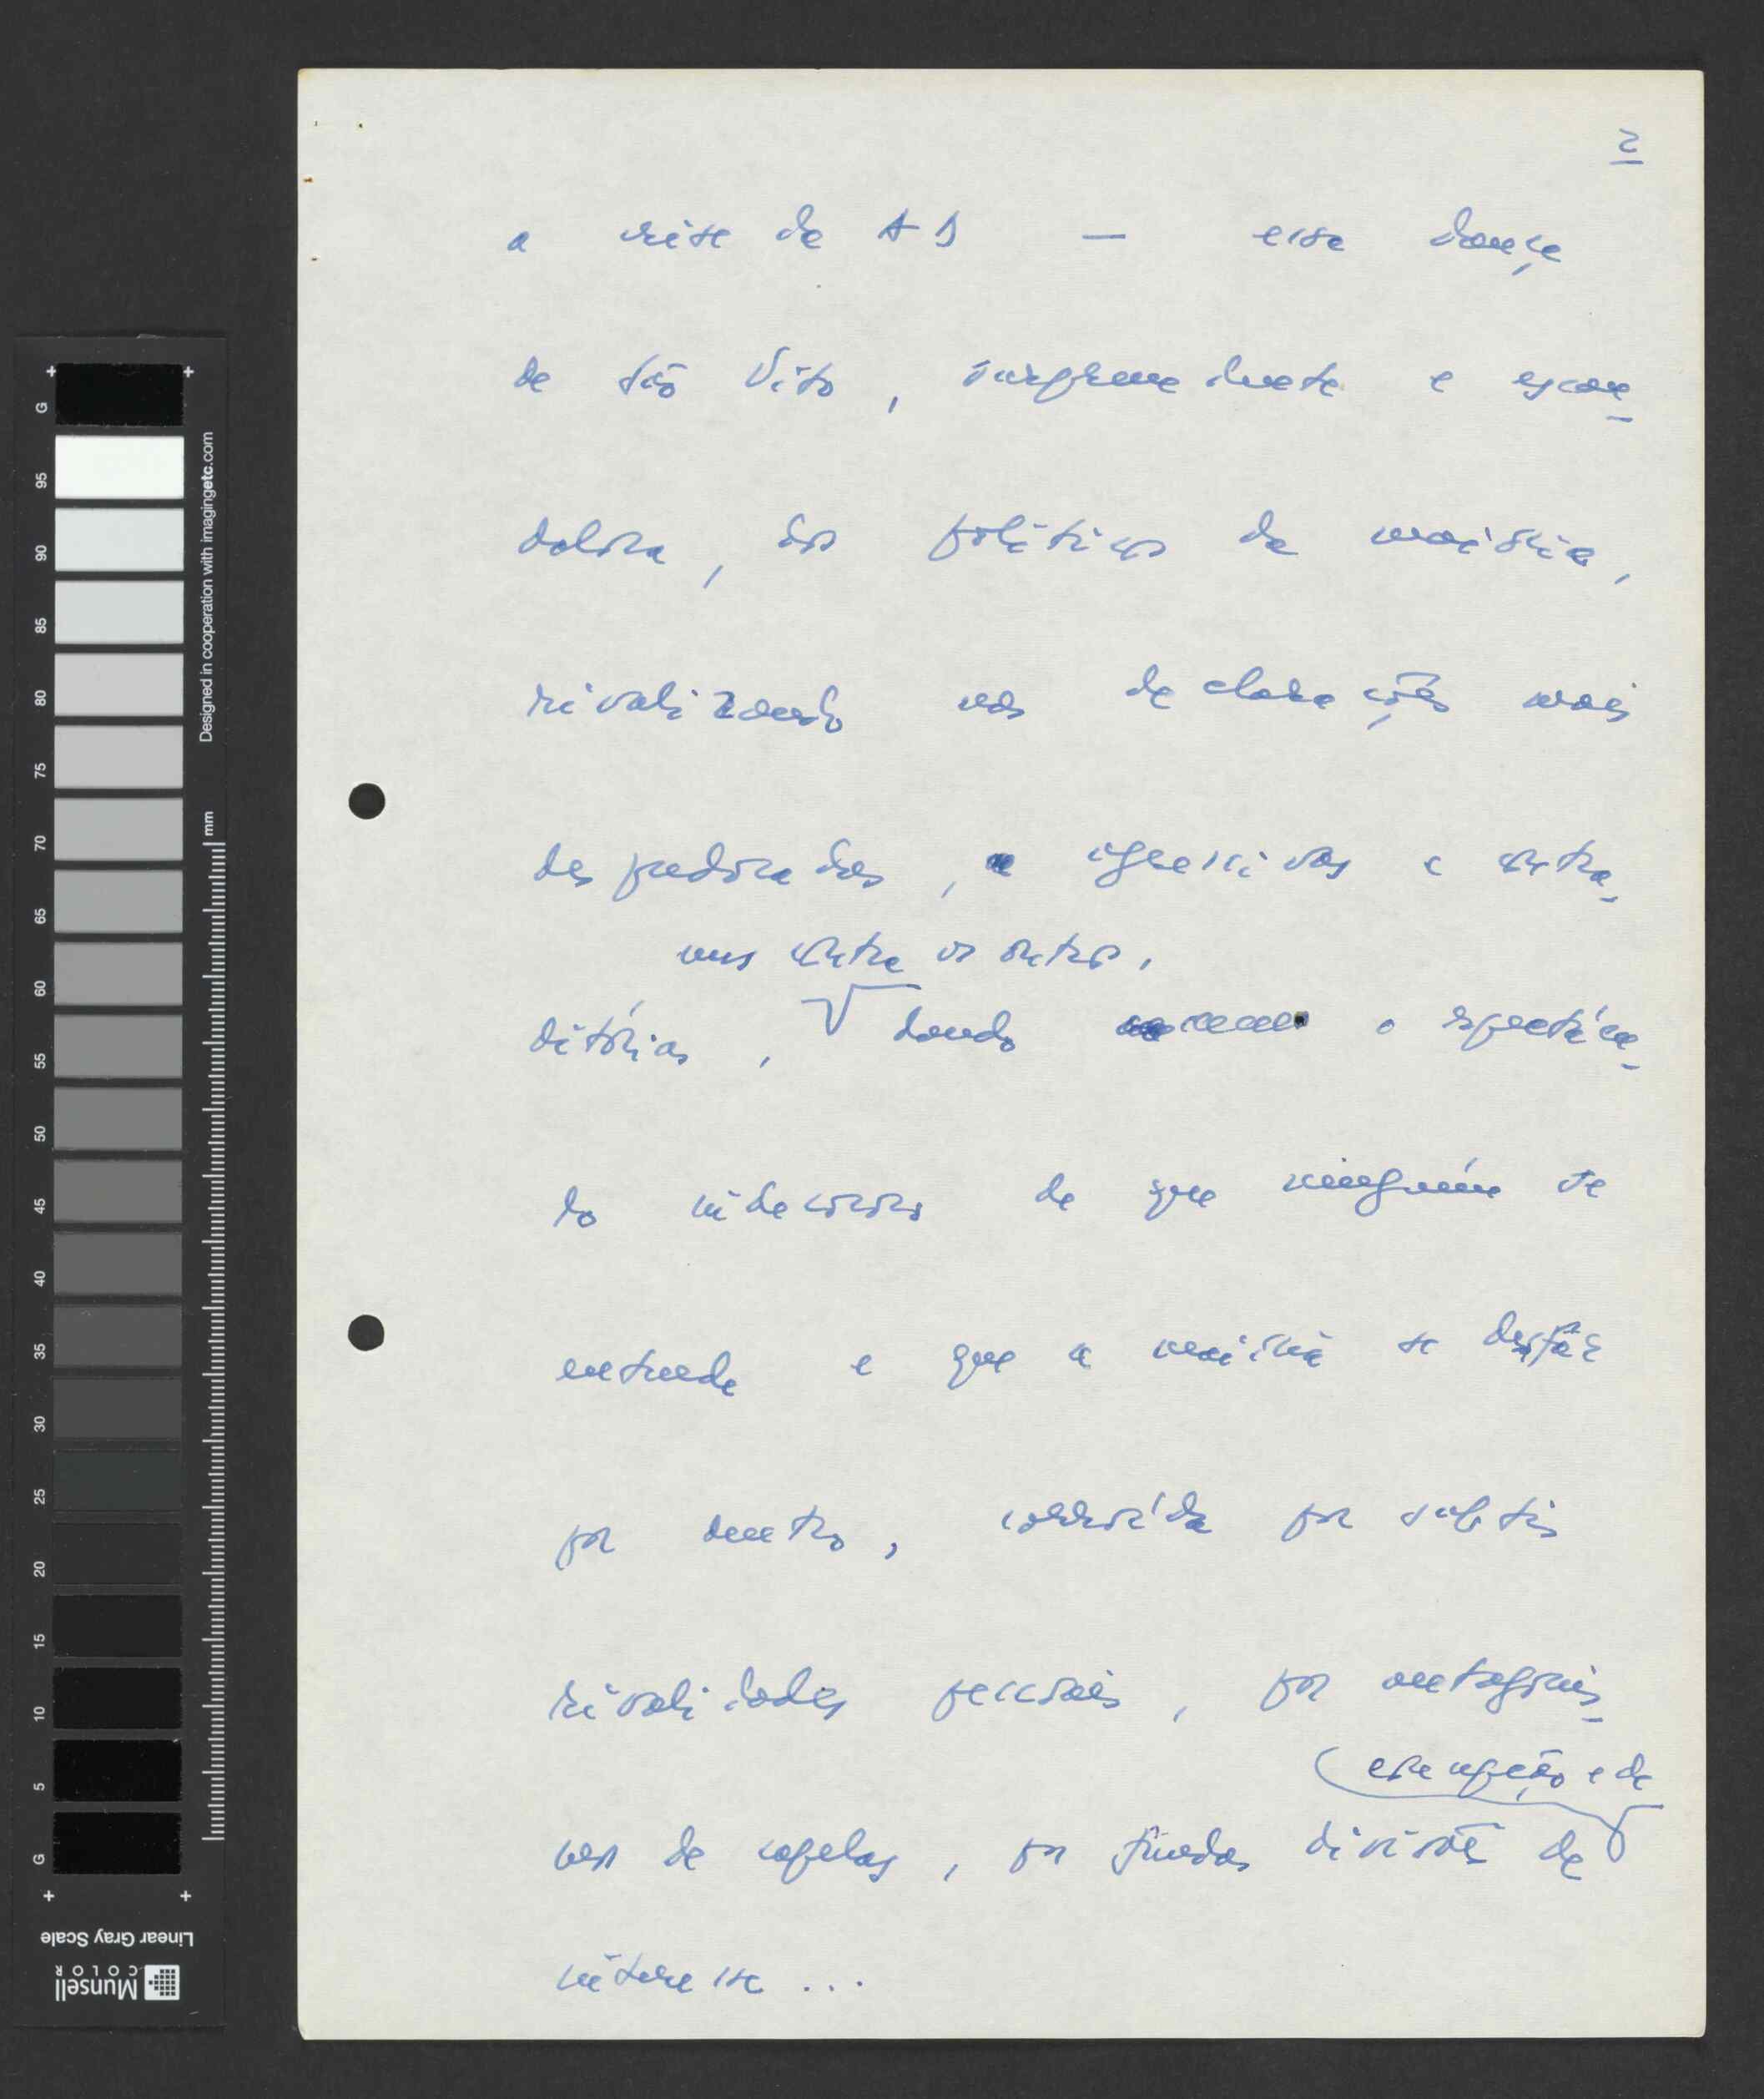 2
a crise da AD — essa dança
de São Vito, surpreendente e escan-
dalosa, dos políticos da maioria,
rivalizando nas declarações mais
desprimorosas, agressivas e contra-
uns contra os outros,
ditórias, dando o espectácu-
lo indecoroso de que ninguém se
entende e que a maioria se desfaz
por dentro, corroída por subtis
rivalidades pessoais, por antagonis-
concepção e de
mos de capelas, por fundas divisões de
interesse...
G 95 90 85 80 75 70 65 60 55 50 45 40 35 30 25 20 15 10 5 G
Designed in cooperation with imagingetc.com
mm
Munsell COLOR
Linear Gray Scale